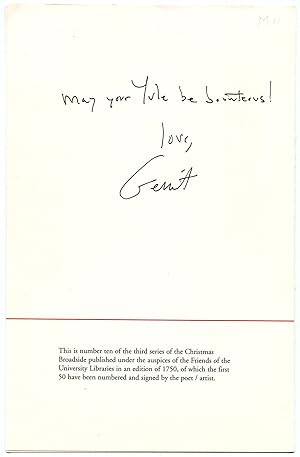 May your Yule be bounteous!
love,
Gerrit
This is number ten of the third series of the Christmas
Broadside published under the auspices of the Friends of the
University Libraries in an edition of 1750, of which the first
50 have been numbered and signed by the poet / artist.